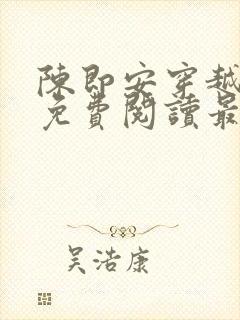 陳即安穿越
免費閱讀最
吴浩康